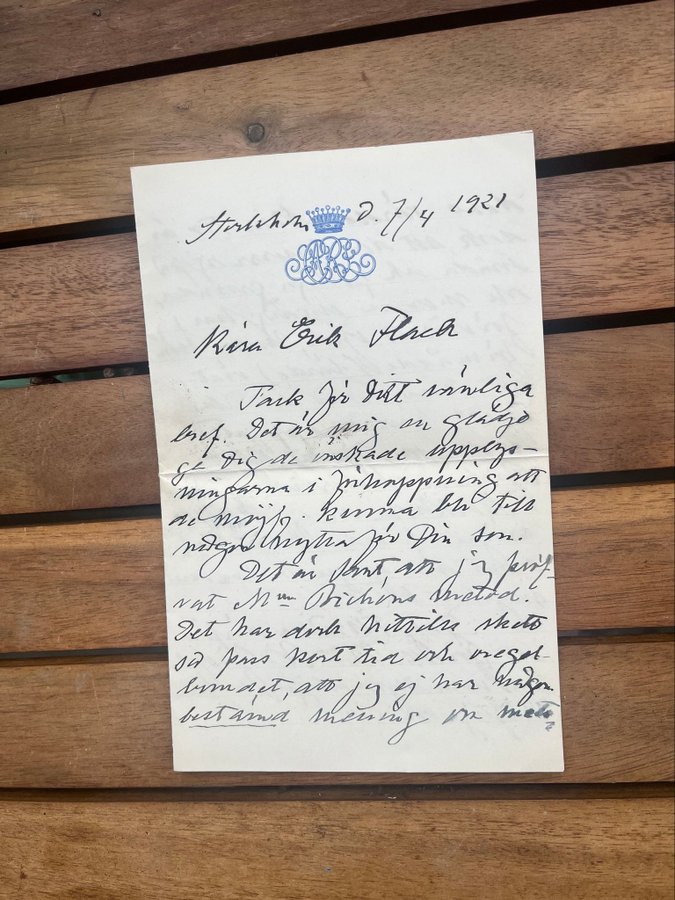 Stockholm d. 7/4 1921
Kära Erik Flach
Tack för Ditt vänliga
bref. Det är mig en glädje
ge Dig de önskade upplys-
ningarna i förhoppning att
de möjl. kunna bli till
någon nytta för Din son.
Det är sant att jag pröf-
vat M<sup>me</sup> Bichóns metod.
Det har dock hittills skett
så pass kort tid och oregel-
bundet, att jag ej har någon
bestämd mening om meto-